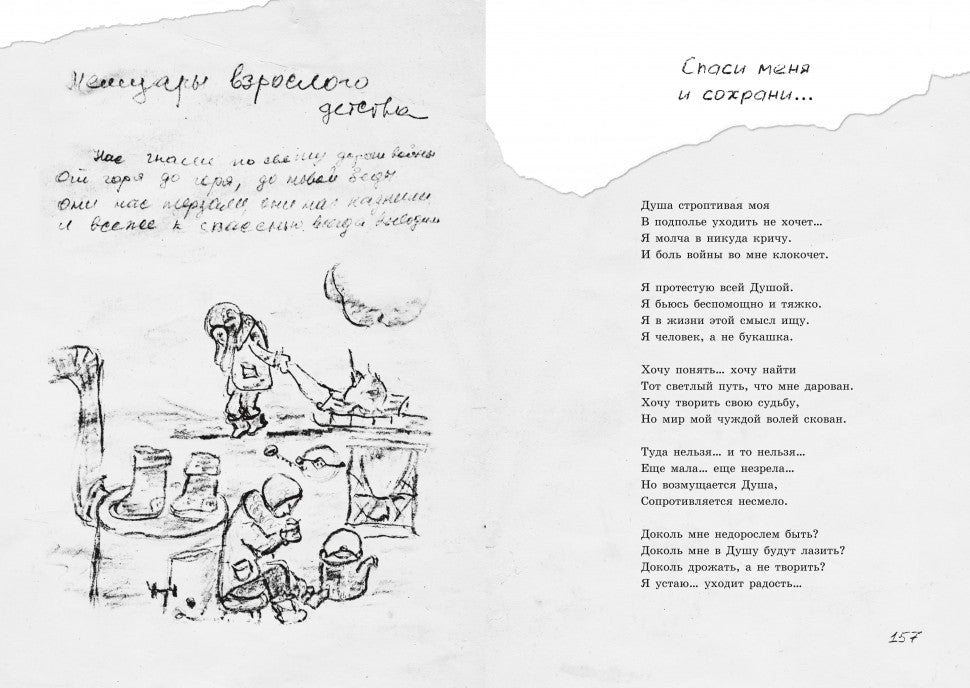 Мемуары взрослого
детства
Нас гнали по свету дороги войны
От горя до горя, до новой беды
Они нас терзали, они нас казнили
И все же к спасенью всегда выводили
Спаси меня
и сохрани...
Душа строптивая моя
В подполье уходить не хочет...
Я молча в никуда кричу.
И боль войны во мне клокочет.
Я протестую всей Душой.
Я бьюсь беспомощно и тяжко.
Я в жизни этой смысл ищу.
Я человек, а не букашка.
Хочу понять... хочу найти
Тот светлый путь, что мне дарован.
Хочу творить свою судьбу,
Но мир мой чуждой волей скован.
Туда нельзя... и то нельзя...
Еще мала... еще незрела...
Но возмущается Душа,
Сопротивляется несмело.
Доколь мне недорослем быть?
Доколь мне в Душу будут лазить?
Доколь дрожать, а не творить?
Я устаю... уходит радость...
157